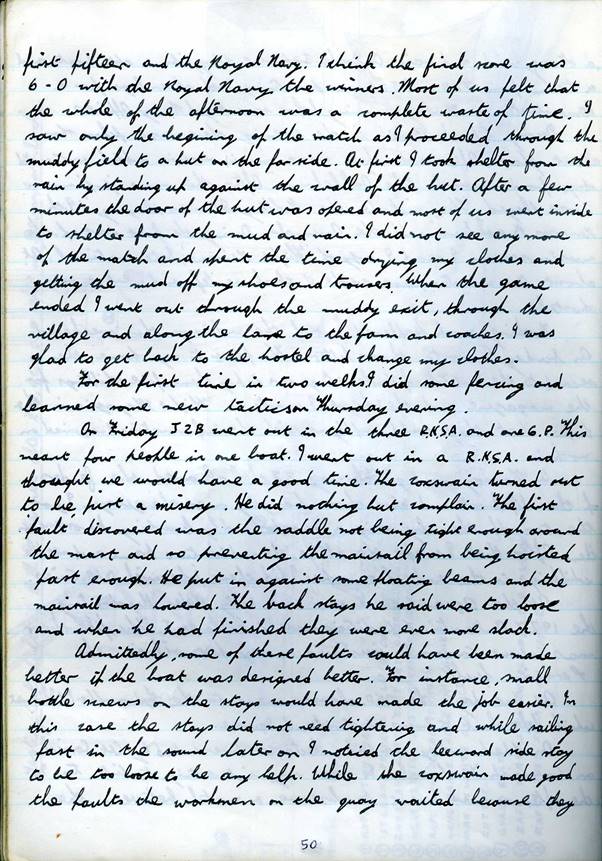 first fifteen and the Royal Navy. I think the final score was
6-0 with the Royal Navy the winners. Most of us felt that
the whole of the afternoon was a complete waste of time. I
saw only the begining of the match as I proceeded through the
muddy field to a hut on the far side. At first I took shelter from the
rain by standing up against the wall of the hut. After a few
minutes the door of the hut was opened and most of us went inside
to shelter from the mud and rain. I did not see any more
of the match and spent the time drying my clothes and
getting the mud off my shoes and trousers. When the game
ended I went out through the muddy exit, through the
village and along the lane to the farm and coaches. I was
glad to get back to the hostel and change my clothes.
For the first time in two weeks I did some fencing and
learned some new tactics on Thursday evening.
On Friday J2B went out in the three R.K.S.A. and one G.P. This
meant four people in one boat. I went out in a R.K.S.A. and
thought we would have a good time. The coxswain turned out
to be just a misery. He did nothing but complain. The first
fault discovered was the saddle not being tight enough around
the mast and so preventing the mainsail from being hoisted
fast enough. He put in against some floating beams and the
mainsail was lowered. The back stays he said were too loose
and when he had finished they were even more slack.
Admittedly, some of these faults could have been made
better if the boat was designed better. For instance, small
bottle screws on the stays would have made the job easier. In
this case the stays did not need tightening and while sailing
fast in the sound later on I noticed the leeward side stay
to be too loose to be any help. While the coxswain made good
the faults the workmen on the quay waited because they
50